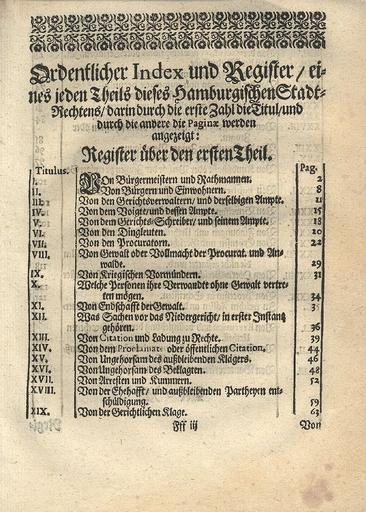 Ordentlicher Index und Register / ei-
nes jeden Theils dieses Hamburgischen Stadt-
Rechtens / darin durch die erste Zahl die Titul / und
durch die andere die Paginæ werden
angezeigt:
Register über den ersten Theil.
Titulus. Pag.
I. VOn Bürgermeistern und Rathmannen. 2
II. Von Bürgern und Einwohnern. 8
III. Von den Gerichtsverwaltern / und derselbigen Ampte. 11
IV. Von dem Voigte / und dessen Ampte. 15
V. Von dem Gerichts-Schreiber / und seinem Ampte. 18
VI. Von den Dingleuten. 20
VII. Von den Procuratorn. 22
VIII. Von Gewalt oder Vollmacht der Procurat. und An-
walde. 29
IX. Von Kriegischen Vormündern. 31
X. Welche Personen ihre Verwandte ohne Gewalt vertre-
ten mögen. 34
XI. Von Endschafft der Gewalt.
XII. Was Sachen vor das Niedergericht / in erster Instantz
gehören. 36
XIII. Von Citation und Ladung zu Rechte. 39
XIV. Von dem Proclamate oder öffentlichen Citation. 44
XV. Von Ungehorsam des außbleibenden Klägers. 46
XVI. Von Ungehorsam des Beklagten. 48
XVII. Von Arresten und Kummern. 52
XVIII. Von der Ehehafft / und außbleibenden Partheyen ent-
schüldigung. 59
XIX. Von der Gerichtlichen Klage. 63
Fff iij Von